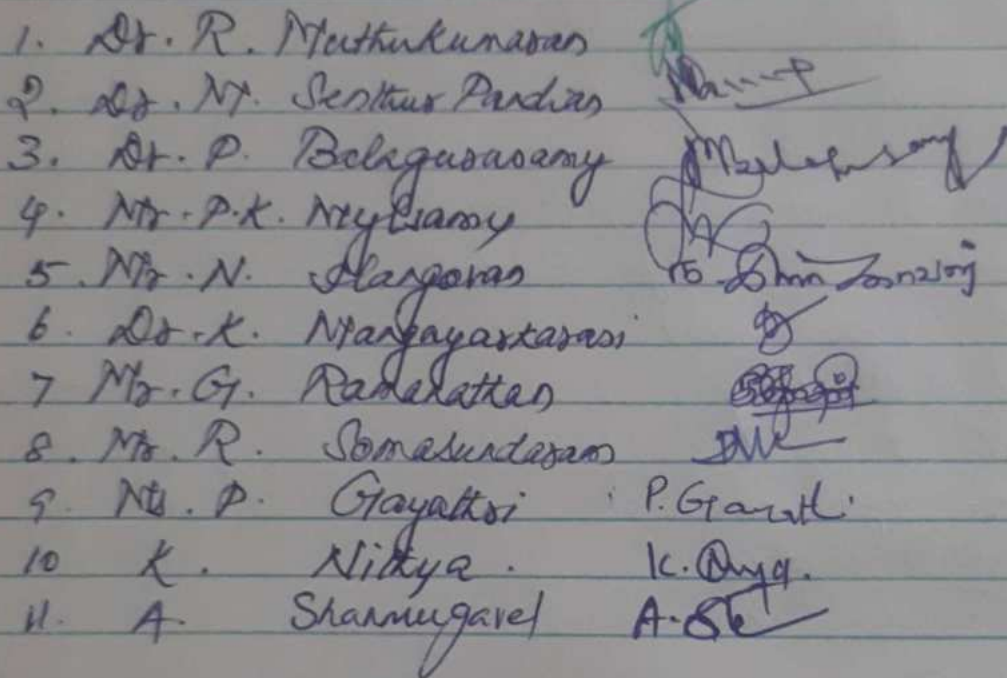 1. Dr. R. Muthukumaran
2. Dr. M. Senthur Pandian
3. Dr. P. Balagurusamy
4. Mr. P.K. Mylsamy
5. Mr. N. Ilangovan
6. Dr. K. Mangayarkarasi
7 Mr. G. Ramanathan
8. Mr. R. Somasundaram
9. Ms. P. Gayathri P. Gayathri
10 K. Nithya. K.
11. A. Shanmugavel A.